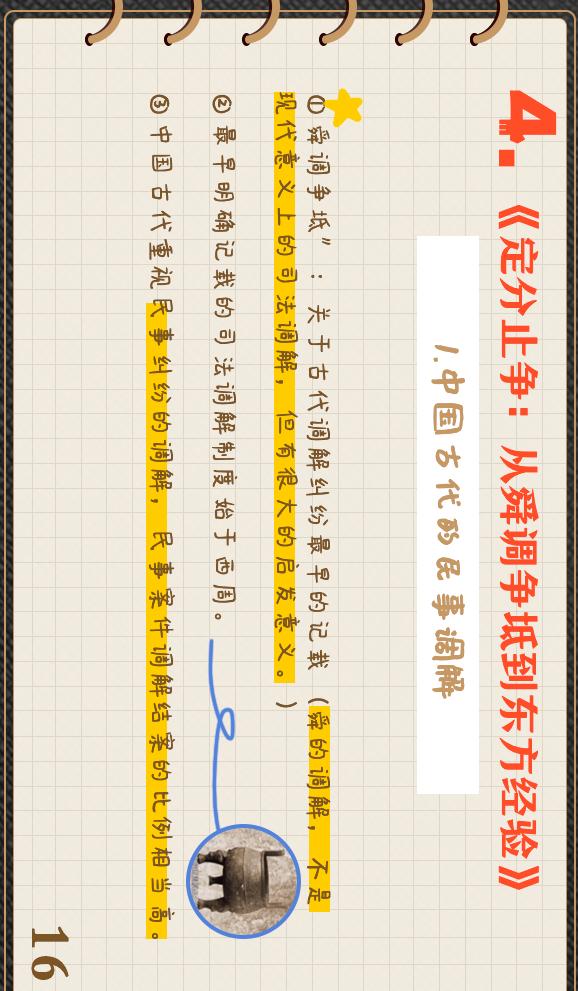 4.《定分止争：从舜调争坻到东方经验》
1.中国古代的民事调解
①舜调争坻”：关于古代调解纠纷最早的记载（舜的调解，不是
现代意义上的司法调解，但有很大的启发意义。）
②最早明确记载的司法调解制度始于西周。
③中国古代重视民事纠纷的调解，民事案件调解结案的比例相当高。
16